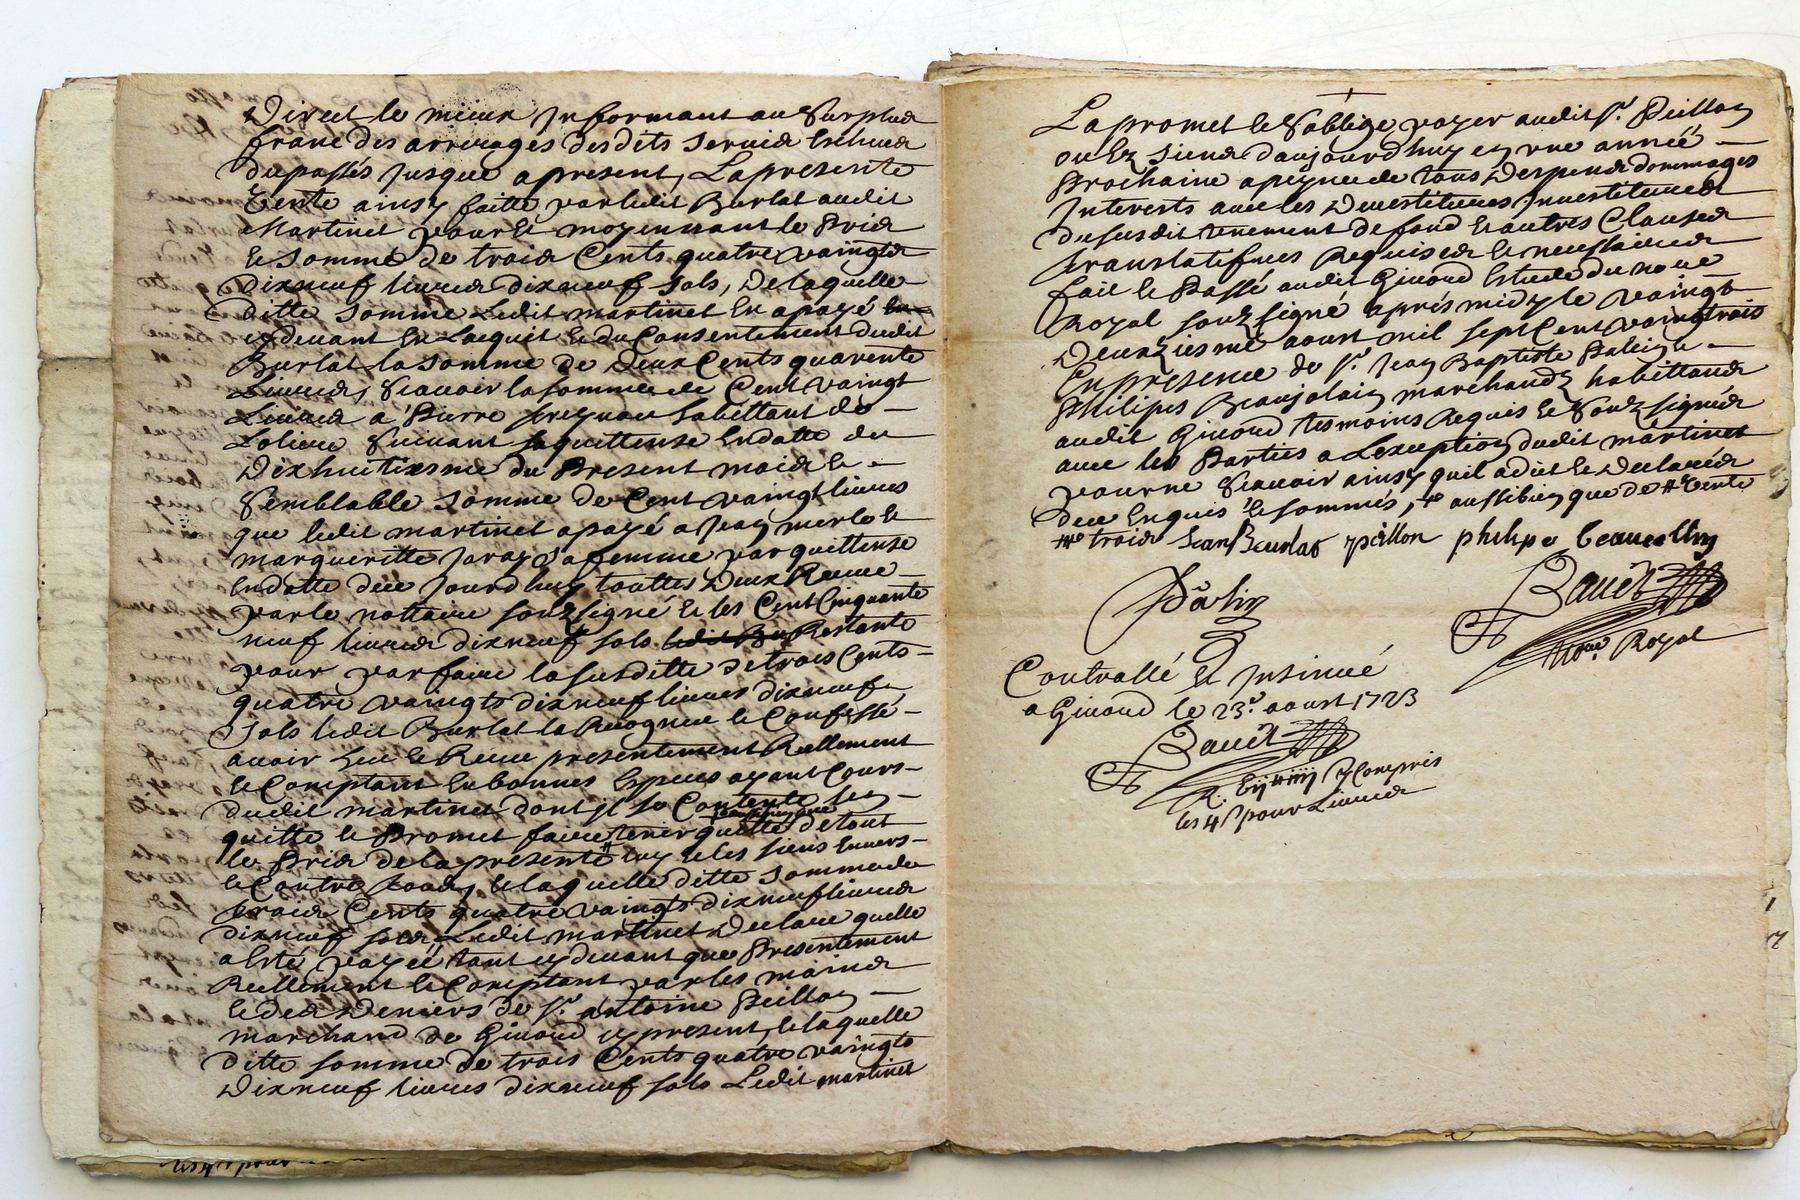 Direct le mieux Informant au Surplus
franc des arrerages desdits servis Escheus
du passés Jusque apresent, La presente
Vente ainsy faitte par ledit Burlat audit
Martinet pour et moyennant le Prix
et somme de trois Cents quatre vaingts
dixneuf livres dixneuf sols, De laquelle
ditte somme Ledit martinet En a payé
cy devant En Lacquit et du Consentement dudit
Burlat la somme de Deux Cents quarente
Livres, scavoir la somme de Cent vaingt
Livres a Pierre habittant de
suivant sa quittense En datte du
Dixhuitiesme du Present mois et
semblable somme de Cent vaingt livres
que ledit martinet a payé a Jean merle et
margueritte sa femme par quittense
En datte de ce Jourdhuy touttes Deux Receue
par le nottaire souzsigné et les Cent Cinquante
neuf livres dixneuf sols Restante
pour par faire la susditte de trois Cents
quatre vaingts dixneuf livres dixneuf
sols ledit Burlat la Recogneue et Confessé
avoir heu et Receu presentement Reellement
et Comptant En bonnes Especes ayant Cours
dudit martinet dont il se Contente, len
quitte et Promet faire tenir quitte de tout
le Prix de la presente luy et les siens Envers
et Contre tous, et laquelle ditte somme de
trois Cents quatre vaingts dixneuf livres
dixneuf sols Ledit martinet Declare quelle
a Esté payée tant cy devant que Presentement
Reellement et Comptant par les mains
et des Deniers de Sr. antoine Peillon
marchand de Givord cy present, et laquelle
ditte somme de trois Cents quatre vaingts
Dixneuf livres dixneuf sols Ledit martinet
La promet et soblige payer audit Sr. Peillon
ou Ez siens daujourdhuy en une année
Prochaine a peyne de tous Despens dommages
Interests avec les Devestitures Investitures
du susdit tenement de fond et autres Clauses
translatifves Requises et necessaires
fait et Passé audit Givord Estude du no.re
Royal souzsigné aprés midy le vaingt
Deuxiesme aoust mil sept Cent vaingtrois
En presence de Sr. Jean Baptiste Dalin et
Philipes Beaujolain marchandz habittans
audit Givord tesmoins Requis et Souzsignés
avec les Parties a Lexception dudit martinet
pour ne scavoir ainsy quil a dict et Declarés
de ce Enquis et sommés, aussi bien que de Vente
trois Jean Burlat peillon philipe beaucollin
Dalin
Bauët
No.re Royal
Controllé et Insinué
a Givord le 23e. aoust 1723
Bauët
R. y Compris
les 4s pour Livres